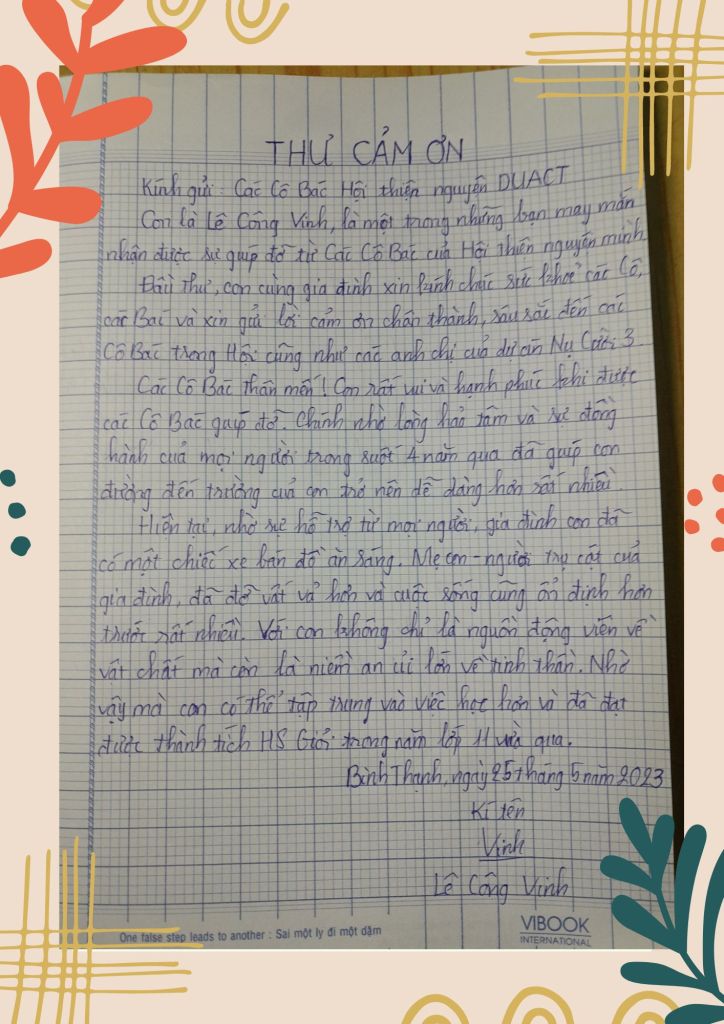 THƯ CẢM ƠN
Kính gửi : Các Cô Bác Hội thiện nguyện DUACT
Con là Lê Công Vinh, là một trong những bạn may mắn
nhận được sự giúp đỡ từ Các Cô Bác của Hội thiện nguyện mình
Đầu thư, con cùng gia đình xin kính chúc sức khoẻ các Cô,
các Bác và xin gửi lời cảm ơn chân thành, sâu sắc đến các
Cô Bác trong Hội cũng như các anh chị của dự án Nụ Cười 3
Các Cô Bác thân mến ! Con rất vui và hạnh phúc khi được
các Cô Bác giúp đỡ. Chính nhờ lòng hảo tâm và sự đồng
hành của mọi người trong suốt 4 năm qua đã giúp con
đường đến trường của con trở nên dễ dàng hơn rất nhiều.
Hiện tại, nhờ sự hỗ trợ từ mọi người, gia đình con đã
có một chiếc xe bán đồ ăn sáng. Mẹ con - người trụ cột của
gia đình, đã đỡ vất vả hơn và cuộc sống cũng ổn định hơn
trước rất nhiều. Với con không chỉ là nguồn động viên về
vật chất mà còn là niềm an ủi lớn về tinh thần. Nhờ
vậy mà con có thể tập trung vào việc học hơn và đã đạt
được thành tích HS Giỏi trong năm lớp 11 vừa qua.
Bình Thạnh, ngày 25 tháng 5 năm 2023
Kí tên
Vinh
Lê Công Vinh
One false step leads to another : Sai một ly đi một dặm
VIBOOK
INTERNATIONAL